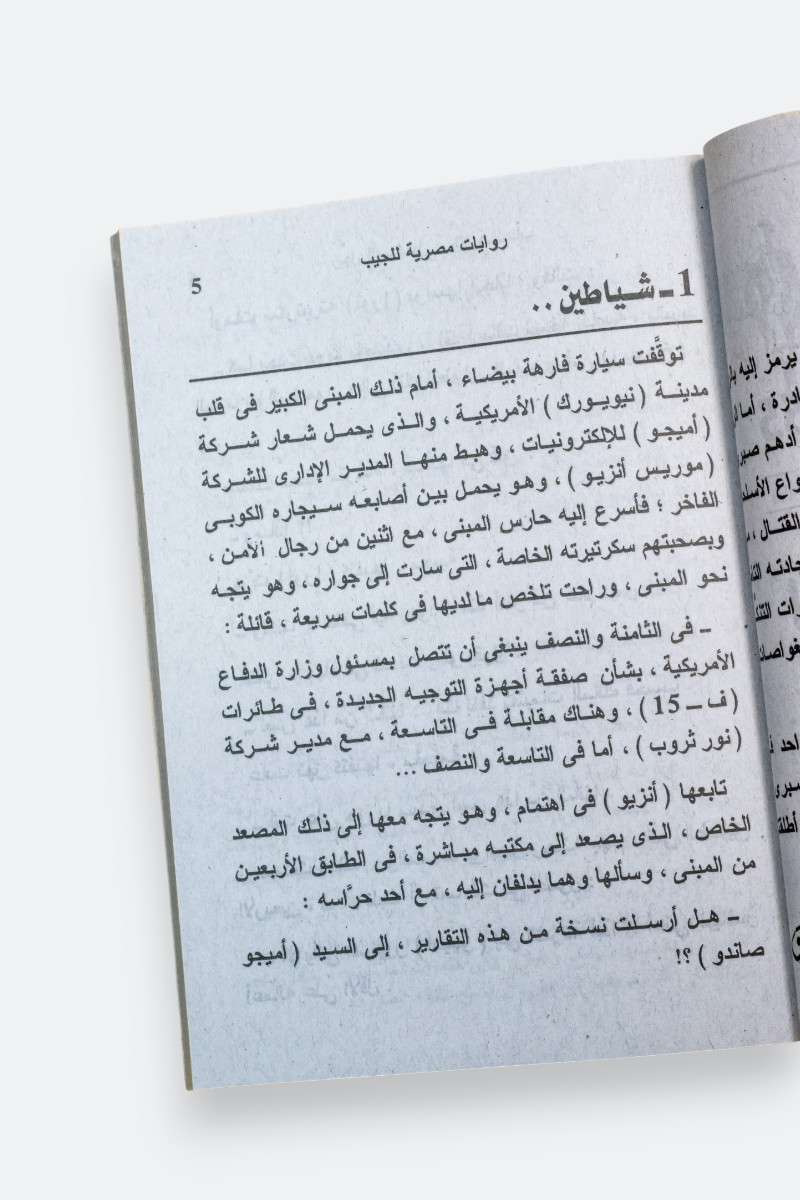 روايات مصرية للجيب
5
1 ـ شـياطين ..
توقَّفت سيارة فارهة بيضاء ، أمام ذلـك المبنى الكبير فى قلب
مدينـة ( نيويـورك ) الأمريكيـة ، والـذى يحمـل شـعار شـركة
( أميجـو ) للإلكترونيـات ، وهبـط منهـا المديـر الإدارى للشركة
( موريـس أنزيـو ) ، وهـو يحمـل بيـن أصابعـه سـيجاره الكوبـى
الفاخر ؛ فأسرع إليه حارس المبنى ، مع اثنين من رجال الأمـن ،
وبصحبتهم سكرتيرته الخاصة ، التى سارت إلى جواره ، وهو يتجـه
نحو المبنى ، وراحت تلخص ما لديها فى كلمات سريعة ، قائلة :
ـ فى الثامنة والنصف ينبغى أن تتصل بمسئول وزارة الدفاع
الأمريكية ، بشأن صفقـة أجهـزة التوجيـه الجديـدة ، فـى طائرات
( ف ــ 15 ) ، وهناك مقابلـة فـى التاسـعة ، مـع مديـر شـركة
( نور ثروب ) ، أما فى التاسعة والنصف ...
تابعها ( أنزيو ) فى اهتمام ، وهـو يتجه معها إلى ذلـك المصعد
الخاص ، الـذى يصعـد إلى مكتبـه مبـاشرة ، فى الطابق الأربعيـن
من المبنى ، وسألها وهما يدلفان إليه ، مع أحد حرَّاسه :
ـ هـل أرسـلت نسـخة مـن هـذه التقاريـر ، إلى السـيد ( أميجو
صاندو ) ؟!
يرمز إليه
أما
أدهم
القتـال ،